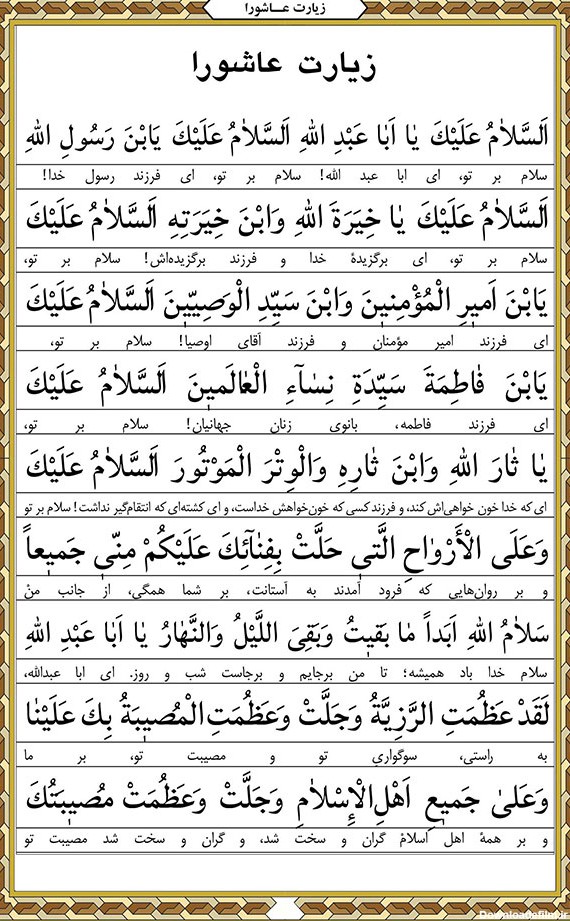 زیارت عـاشورا
زیارت عاشورا
اَلسَّلاٰمُ عَلَيْكَ يٰا اَبٰا عَبْدِ اللهِ اَلسَّلاٰمُ عَلَيْكَ يَابْنَ رَسُولِ اللهِ
سلام بر تو، ای ابا عبد الله! سلام بر تو، ای فرزند رسول خدا!
اَلسَّلاٰمُ عَلَيْكَ يٰا خِيَرَةَ اللهِ وَابْنَ خِيَرَتِهِ اَلسَّلاٰمُ عَلَيْكَ
سلام بر تو، ای برگزیدهٔ خدا و فرزند برگزیده‌اش! سلام بر تو،
يَابْنَ اَميرِ الْمُؤْمِنينَ وَابْنَ سَيِّدِ الْوَصِيّينَ اَلسَّلاٰمُ عَلَيْكَ
ای فرزند امیر مؤمنان و فرزند آقای اوصیا! سلام بر تو،
يَابْنَ فٰاطِمَةَ سَيِّدَةِ نِسٰاءِ الْعٰالَمينَ اَلسَّلاٰمُ عَلَيْكَ
ای فرزند فاطمه، بانوی زنان جهانیان! سلام بر تو،
يٰا ثٰارَ اللهِ وَابْنَ ثٰارِهِ وَالْوِتْرَ الْمَوْتُورَ اَلسَّلاٰمُ عَلَيْكَ
ای که خدا خون خواهی‌اش کند، و فرزند کسی که خون‌خواهش خداست، و ای کشته‌ای که انتقام‌گیر نداشت! سلام بر تو
وَعَلَى الْأَرْوٰاحِ الَّتي حَلَّتْ بِفِنٰائِكَ عَلَيْكُمْ مِنّي جَميعاً
و بر روان‌هایی که فرود آمدند به آستانت، بر شما همگی، از جانب من
سَلاٰمُ اللهِ اَبَداً مٰا بَقيتُ وَبَقِيَ اللَّيْلُ وَالنَّهٰارُ يٰا اَبٰا عَبْدِ اللهِ
سلام خدا باد همیشه؛ تا من برجایم و برجاست شب و روز. ای ابا عبدالله،
لَقَدْ عَظُمَتِ الرَّزِيَّةُ وَجَلَّتْ وَعَظُمَتِ الْمُصيبَةُ بِكَ عَلَيْنٰا
به راستی، سوگواریِ تو و مصیبت تو، بر ما
وَعَلىٰ جَميعِ اَهْلِ الْإِسْلاٰمِ وَجَلَّتْ وَعَظُمَتْ مُصيبَتُكَ
و بر همهٔ اهل اسلام گران و سخت شد، و گران و سخت شد مصیبت تو